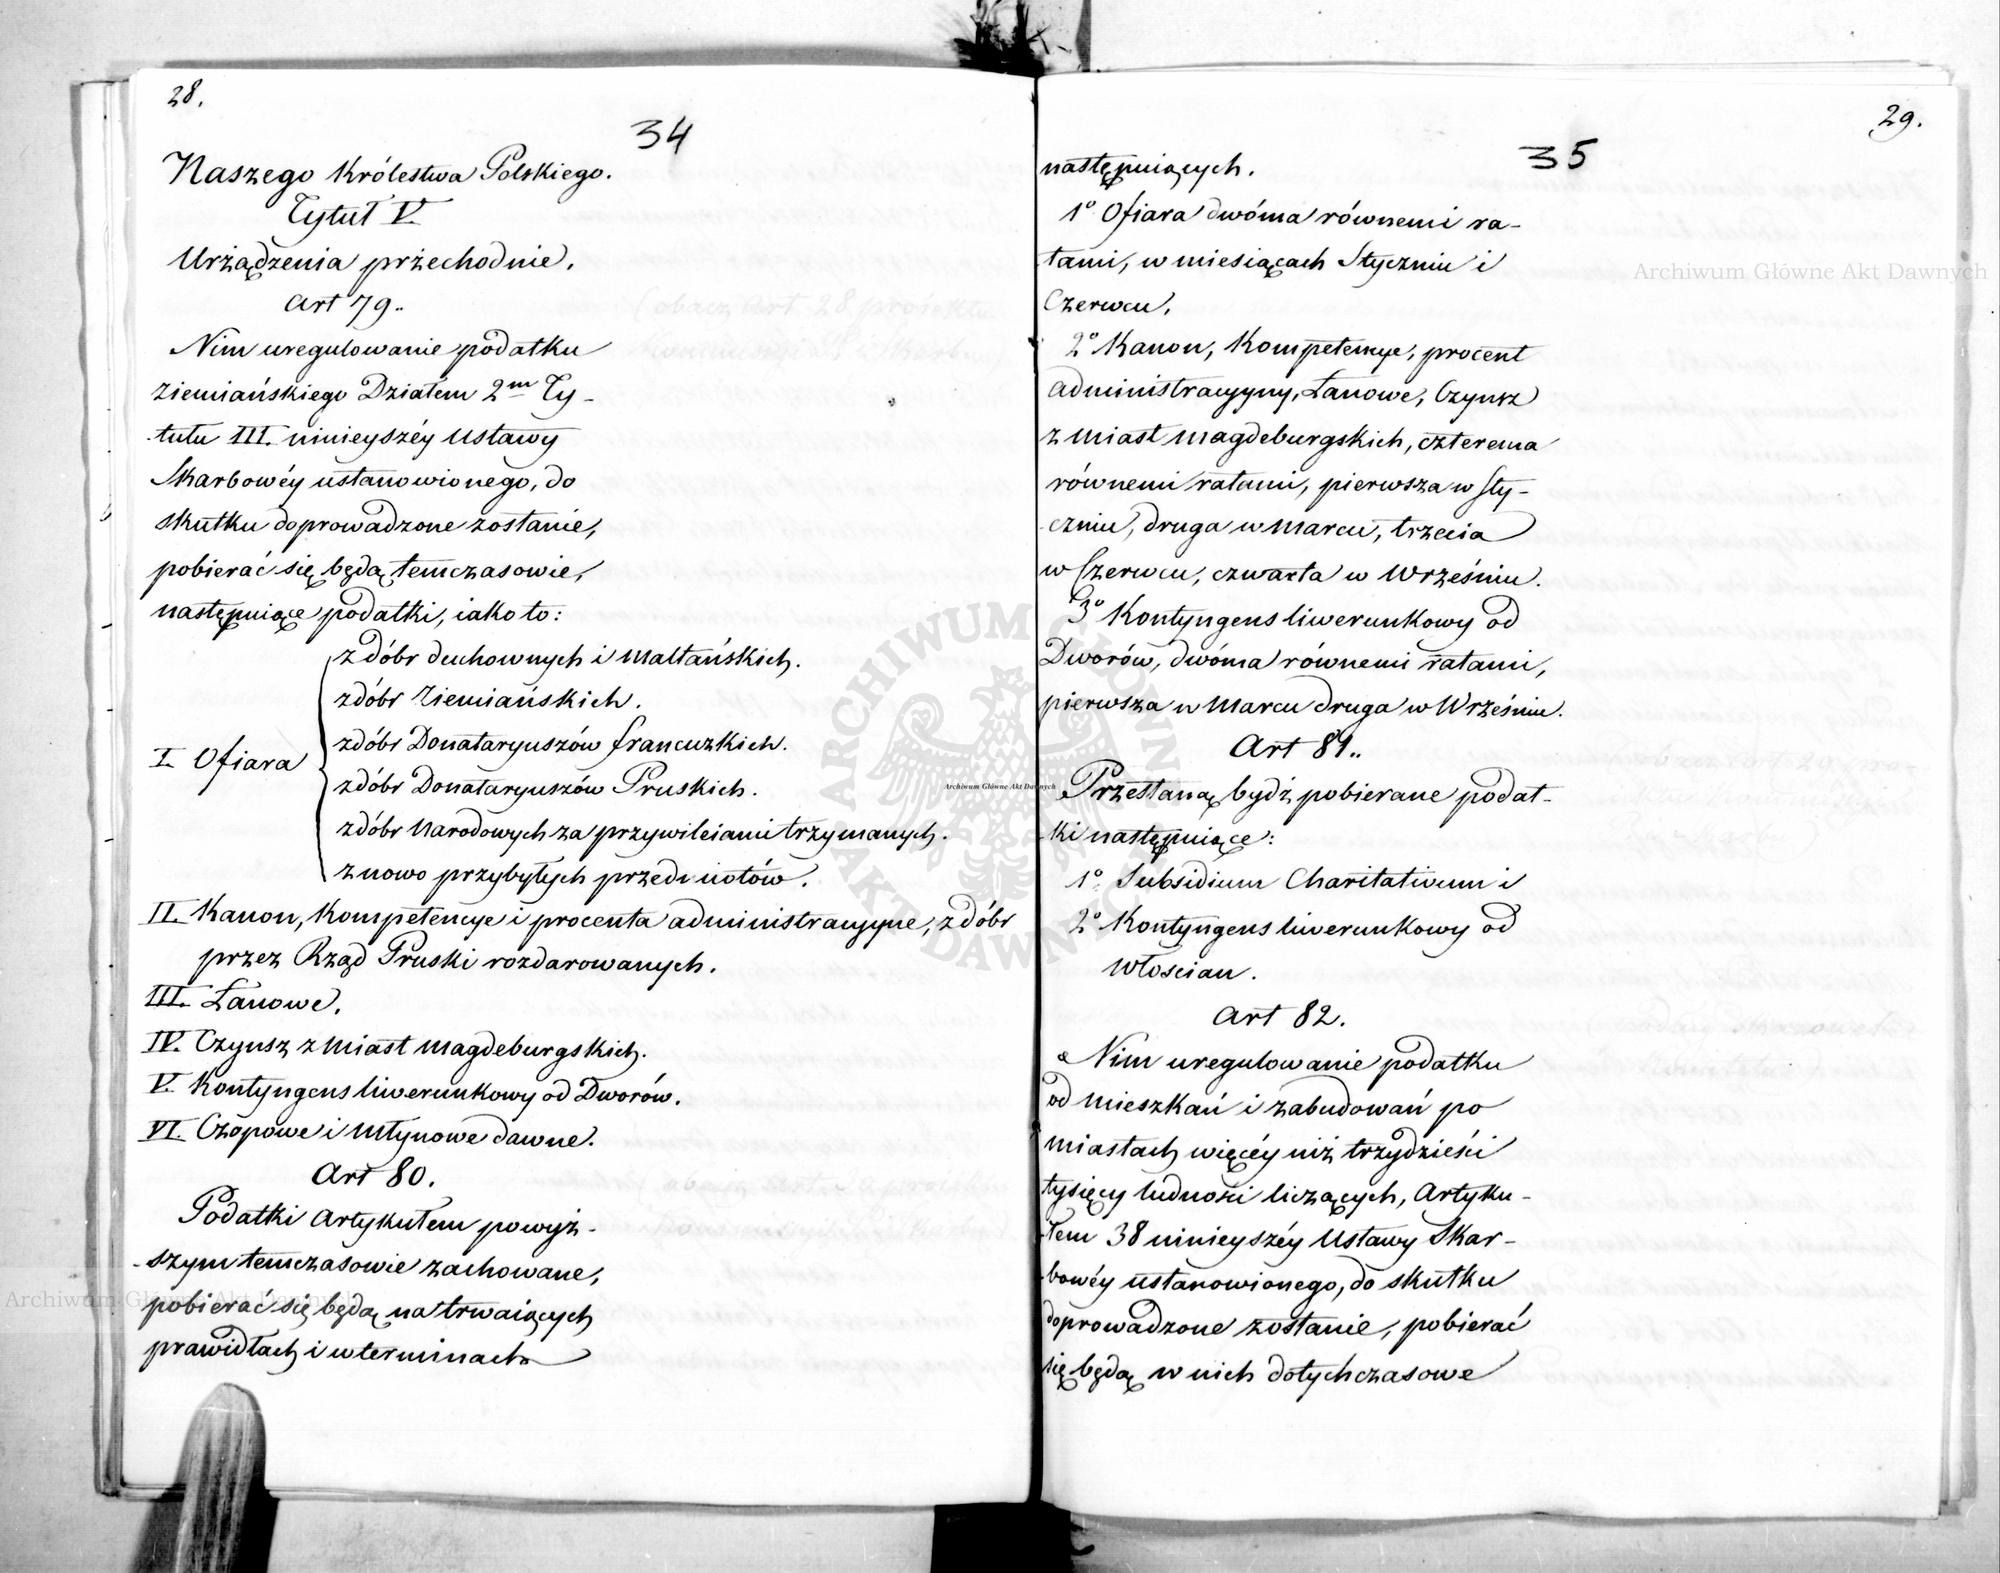 28.
34
Naszego Królestwa Polskiego.
Tytuł V.
Urżądzenia przechodnie.
Art 79.
Nim uregulowanie podatku
ziemiańskiego Działem 2m Ty-
tułu III. ninieyszéy Ustawy
Skarbowéy ustanowionego, do
skutku doprowadzone zostanie,
pobierać się będą temczasowie,
następuiące podatki, iako to:
I. Ofiara
z dóbr duchownych i Maltańskich.
z dóbr Ziemiańskich.
z dóbr Donataryuszów francuzkich.
z dóbr Donataryuszów Pruskich.
z dóbr Narodowych za przywileiami trzymanych.
z nowo przybyłych przedmiotów.
II. Kanon, Kompetencye i procenta administracyyne, z dóbr
przez Rząd Pruski rozdarowanych.
III. Łanowe.
IV. Czynsz z Miast magdeburgskich.
V. Kontyngens liwerunkowy od Dworów.
VI. Czopowe i młynowe dawne.
Art 80.
Podatki Artykułem powyż-
szym temczasowie zachowane,
pobierać się będą na trwaiących
prawidłach i w terminach
29.
35
następuiących.
1o Ofiara dwóma równemi ra-
tami, w miesiącach Styczniu i
Czerwcu.
2o Kanon, Kompetencye, procent
administracyyny, Łanowe, Czynsz
z Miast magdeburgskich, czterema
równemi ratami, pierwsza w Sty-
czniu, druga w Marcu, trzecia
w Czerwcu, czwarta w Wrześniu.
3o Kontyngens liwerunkowy od
Dworów, dwóma równemi ratami,
pierwsza w Marcu druga w Wrześniu.
Art 81.
Przestaną bydź pobierane podat-
ki następuiące:
1o Subsidium Charitativum i
2o Kontyngens liwerunkowy od
Włoscian.
Art 82.
Nim uregulowanie podatku
od mieszkań i zabudowań po
miastach więcéy niż trzydzieści
tysięcy ludności liczących, Artyku-
łem 38 ninieyszéy Ustawy Skar-
bowéy ustanowionego, do skutku
doprowadzone zostanie, pobierać
się będą w nich dotychczasowe
Archiwum Główne Akt Dawnych
Archiwum Główne Akt Dawnych
Archiwum Główne Akt Dawnych
ARCHIWUM GŁÓWNE AKT DAWNYCH